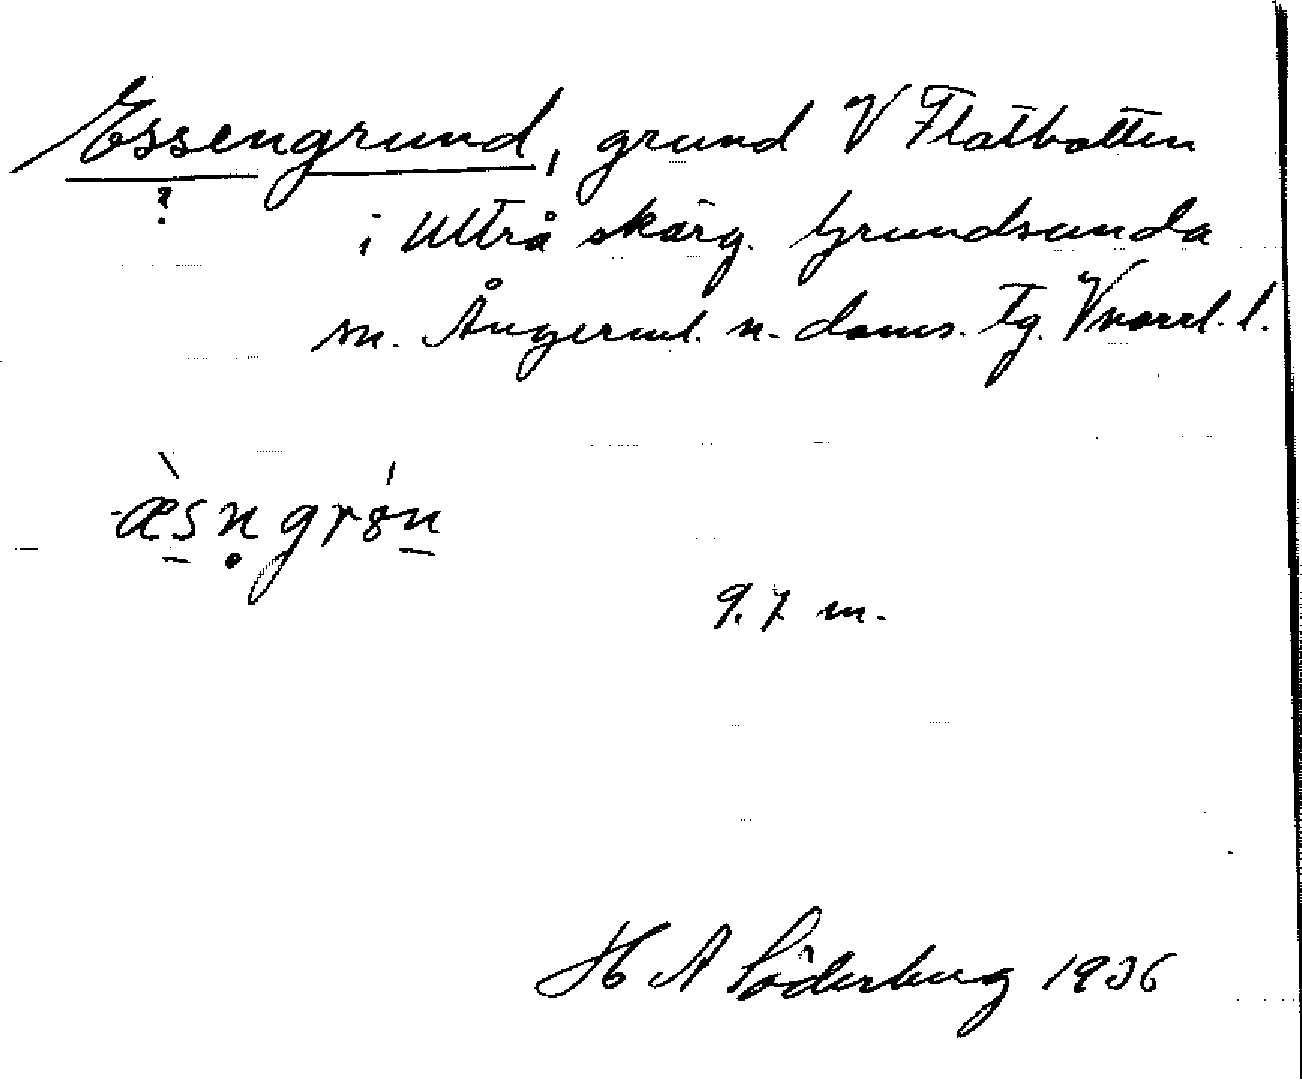 Essengrund, grund V Flatbotten
?
i Ultrå skärg. Grundsunda
sn. Ångerml. n. doms. Tg. Vnorrl. l.
æ̀sn̥grǿn
9.7 m.
H A Söderberg 1936